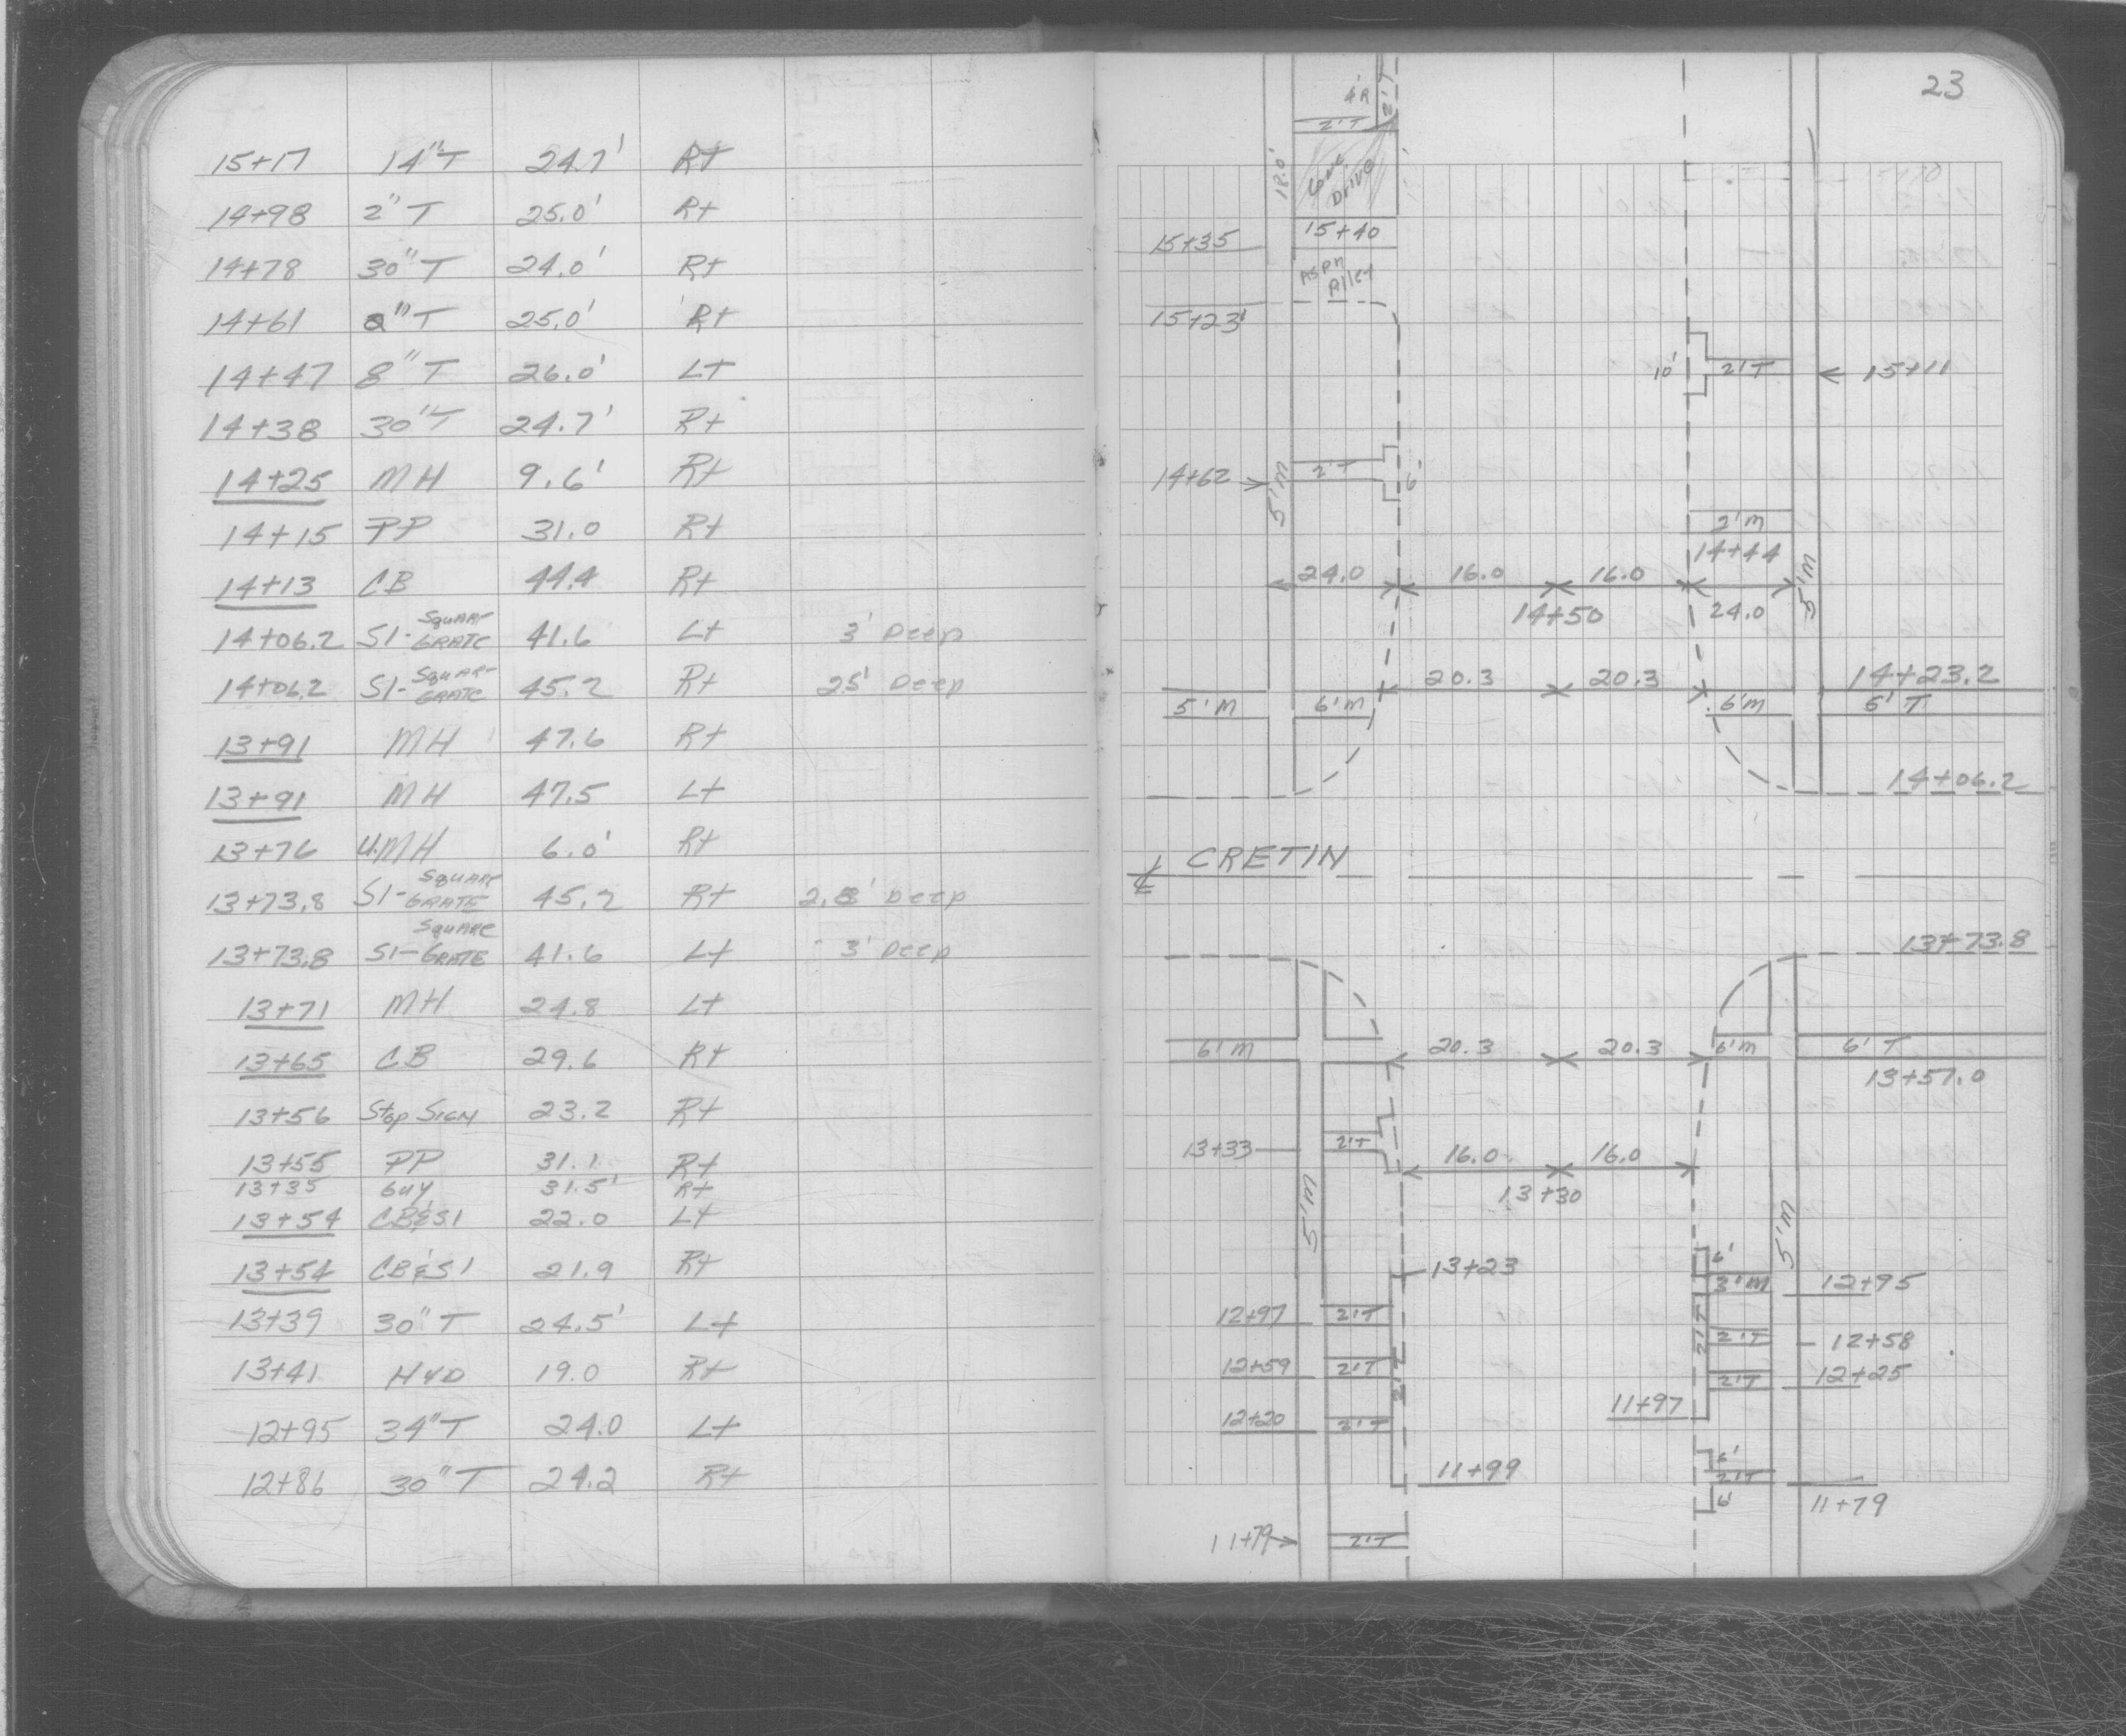 15+17 14"T 24.7' Rt
14+98 2"T 25.0' Rt
14+78 30"T 24.0' Rt
14+61 "T 25.0' Rt
14+47 8"T 26.0' Lt
14+38 30"T 24.7' Rt
14+25 MH 9.6' Rt
14+15 PP 31.0 Rt
14+13 CB 44.4 Rt
14+06.2 SI-Square Grate 41.6 Lt 3' Deep
14+06.2 SI-Square Grate 45.2 Rt 25' Deep
13+91 MH 47.6 Rt
13+91 MH 47.5 Lt
13+76 U.MH 6.0' Rt
13+73.8 SI-Square Grate 45.2 Rt 2.8' Deep
13+73.8 SI-Square Grate 41.6 Lt 3' Deep
13+71 MH 24.8 Lt
13+65 CB 29.6 Rt
13+56 Stop Sign 23.2 Rt
13+55 PP 31.1 Rt
13+35 Guy 31.5' Rt
13+54 CB&SI 22.0 Lt
13+54 CB&SI 21.9 Rt
13+39 30"T 24.5' Lt
13+41 HYD 19.0 Rt
12+95 34"T 24.0 Lt
12+86 30"T 24.2 Rt
23
4R 2'T
2'T
18.0' Drive
15+35 15+40
Asph Alley
15+23'
10' 2'T 15+11
14+62 5'M 2'T 6'
2'M
14+44
24.0 16.0 16.0 5'M
14+50 24.0
20.3 20.3 14+23.2
5'M 6'M 6'M 6'T
14+06.2
℄ CRETIN
13+73.8
6'M 20.3 20.3 6'M 6'T
13+57.0
13+33 2'T 16.0 16.0
13+30
5'M 5'M
13+23 6'
3'M 12+95
12+97 2'T
2'T 2'T 12+58
12+59 2'T 2'T
2'T 12+25
11+97
12+20 2'T
11+99 6'
2'T
6' 11+79
11+79 2'T